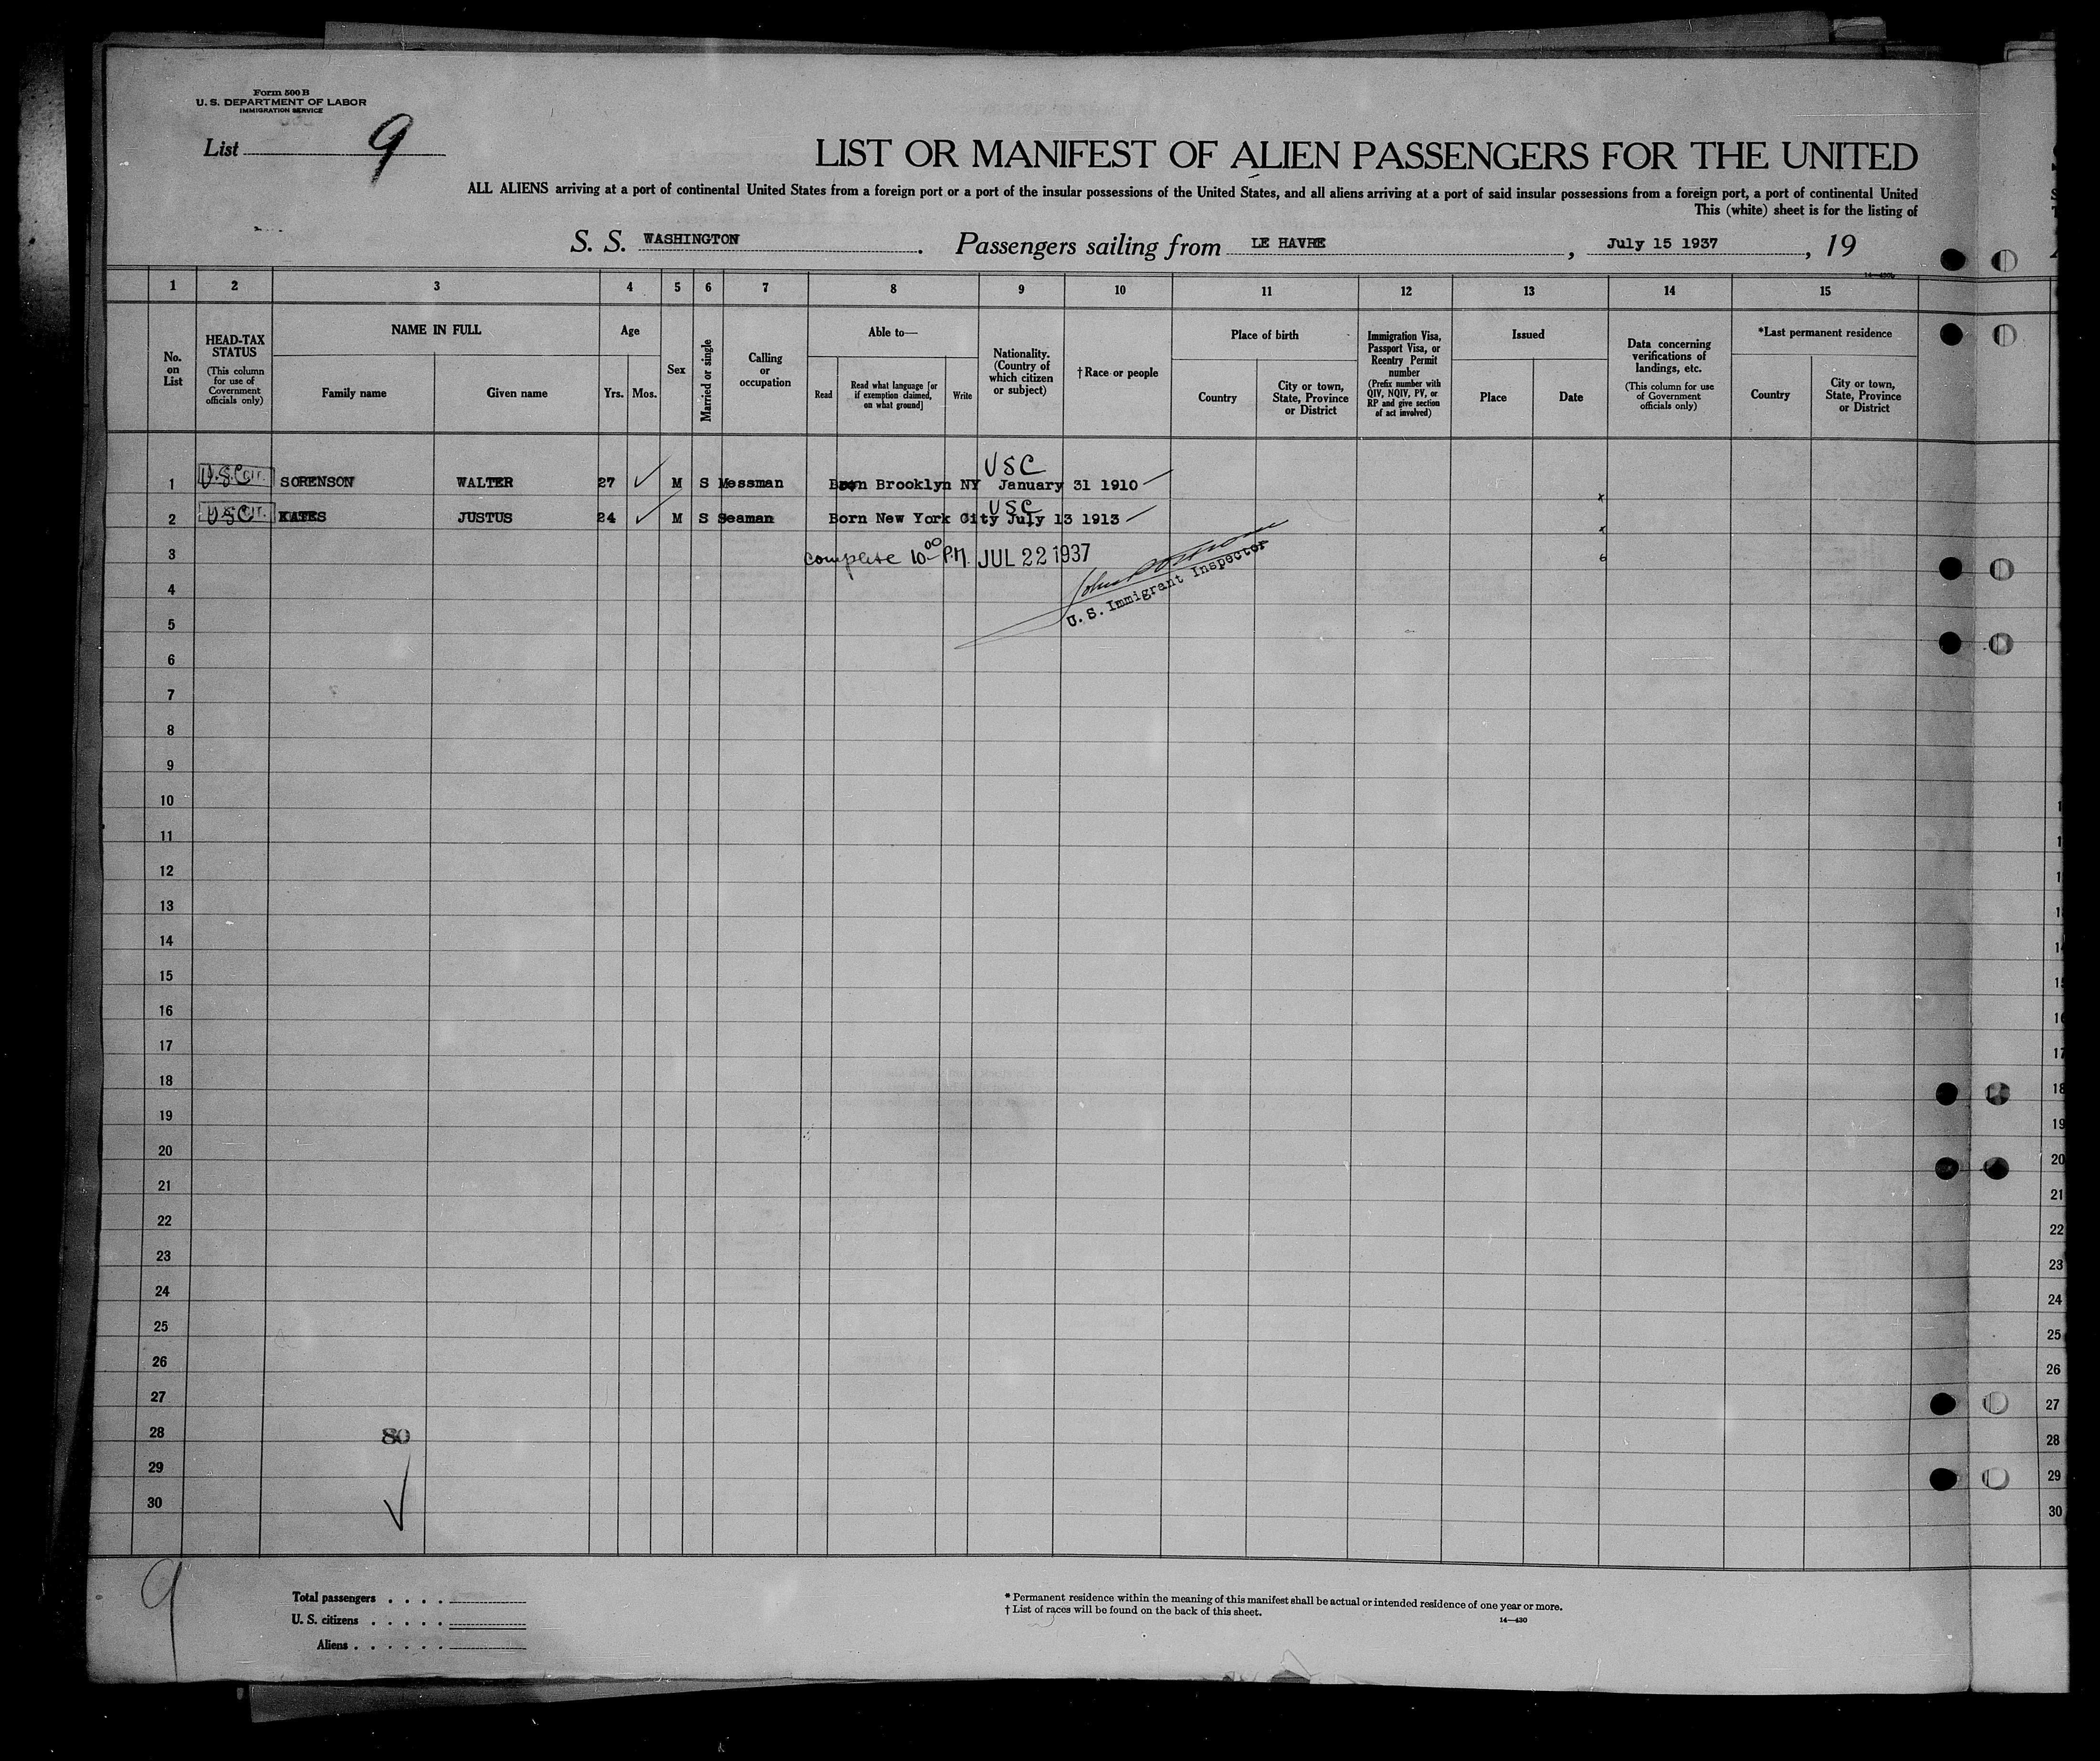 Form 500 B
U. S. DEPARTMENT OF LABOR
IMMIGRATION SERVICE
List 9
LIST OR MANIFEST OF ALIEN PASSENGERS FOR THE UNITED
ALL ALIENS arriving at a port of continental United States from a foreign port or a port of the insular possessions of the United States, and all aliens arriving at a port of said insular possessions from a foreign port, a port of continental United
This (white) sheet is for the listing of
S. S. WASHINGTON. Passengers sailing from LE HAVRE, July 15 1937, 19
14—430
1 2 3 4 5 6 7 8 9 10 11 12 13 14 15
No. on List
HEAD-TAX STATUS (This column for use of Government officials only)
NAME IN FULL
Family name
Given name
Age
Yrs. Mos.
Sex
Married or single
Calling or occupation
Able to—
Read
Read what language [or if exemption claimed, on what ground]
Write
Nationality. (Country of which citizen or subject)
†Race or people
Place of birth
Country
City or town, State, Province or District
Immigration Visa, Passport Visa, or Reentry Permit number (Prefix number with QIV, NQIV, PV, or RP and give section of act involved)
Issued
Place
Date
Data concerning verifications of landings, etc. (This column for use of Government officials only)
*Last permanent residence
Country
City or town, State, Province or District
USC
1 USC SORENSON WALTER 27 ✓ M S Messman Born Brooklyn NY January 31 1910
x
USC
2 USC KATES JUSTUS 24 ✓ M S Seaman Born New York City July 13 1913
x
3 complete 10 00 P.M. JUL 22 1937
6
4
U. S. Immigrant Inspector
5
6
7
8
9
10
11
12
13
14
15
16
17
18
19
20
21
22
23
24
25
26
27
28 80
29
30 ✓
9
Total passengers . . . .
U. S. citizens . . . . .
Aliens . . . . . .
* Permanent residence within the meaning of this manifest shall be actual or intended residence of one year or more.
† List of races will be found on the back of this sheet.
14—430
14
15
16
17
18
19
20
21
22
23
24
25
26
27
28
29
30